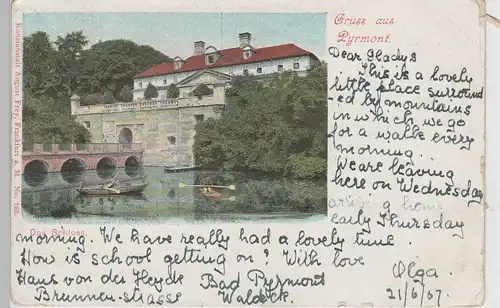 Gruss aus
Pyrmont.
Dear Gladys
This is a lovely
little place surround
-ed by mountains
in which we go
for a walk every
morning..
We are leaving
here on Wednesday
arriving home
early Thursday
morning. We have really had a lovely time.
How is school getting on? With love
Olga.
21/6/07
Haus von der Heyde
Brunnen-strasse
Bad Pyrmont
Waldeck.
Das Schloss.
Kunstanstalt August Frey, Frankfurt a. M. No. 165.